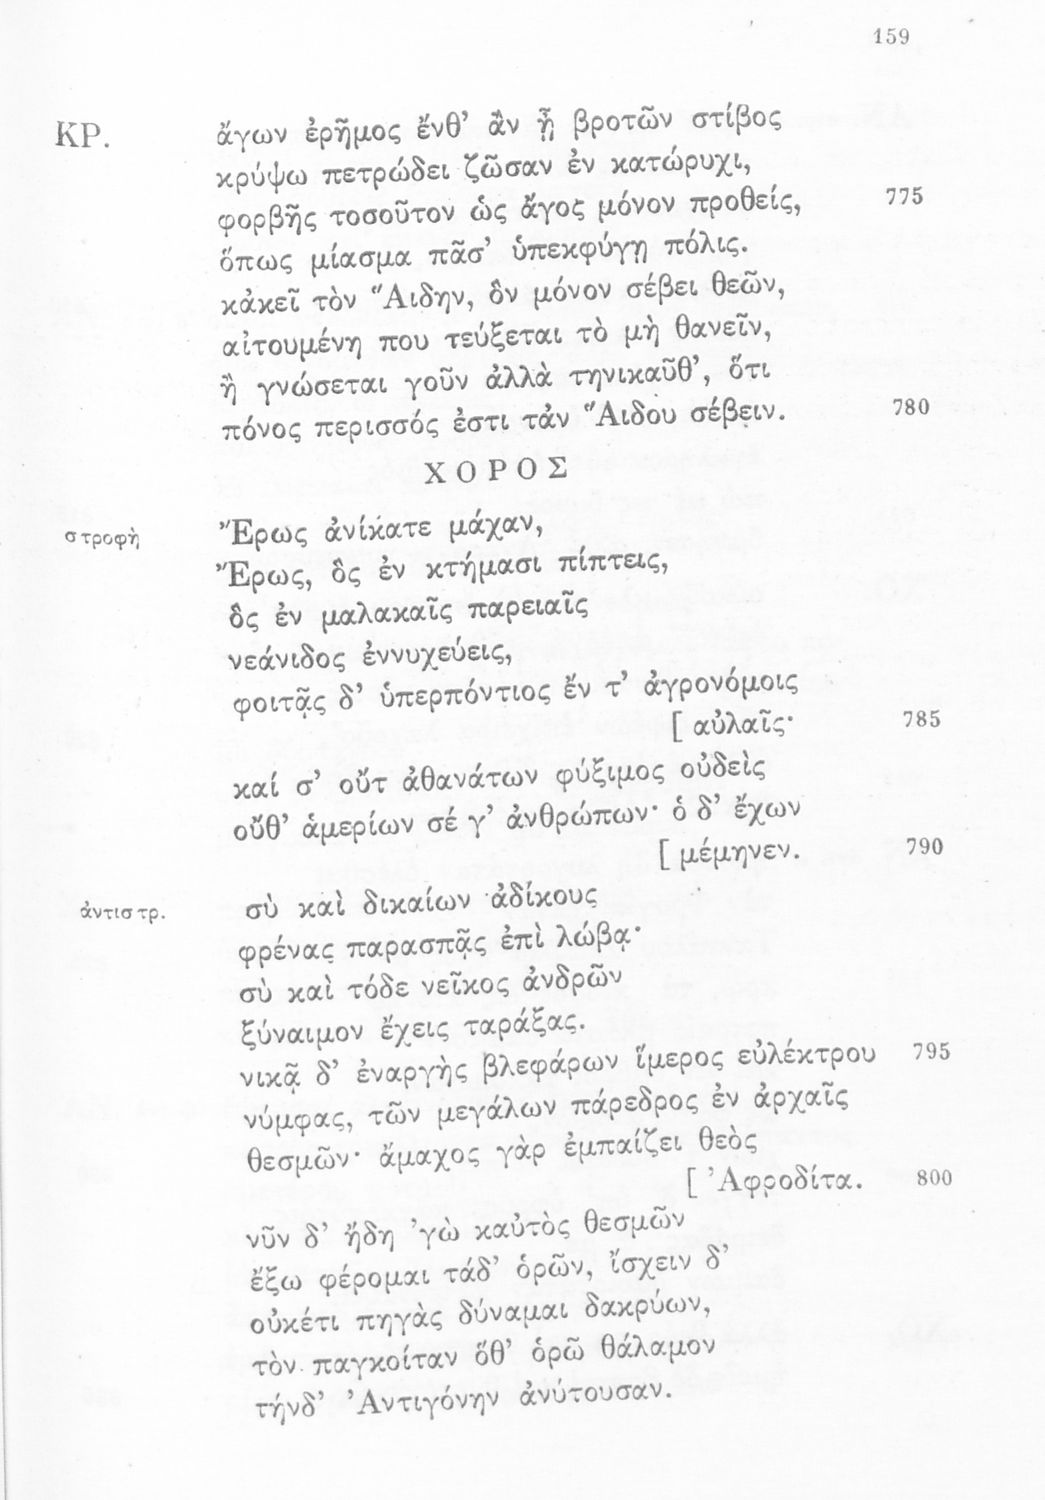 159
ΚΡ. ἄγων ἐρῆμος ἔνθ' ἂν ᾖ βροτῶν στίβος
κρύψω πετρώδει ζῶσαν ἐν κατώρυχι,
φορβῆς τοσοῦτον ὡς ἄγος μόνον προθείς, 775
ὅπως μίασμα πᾶσ' ὑπεκφύγῃ πόλις.
κἀκεῖ τὸν Ἅιδην, ὃν μόνον σέβει θεῶν,
αἰτουμένη που τεύξεται τὸ μὴ θανεῖν,
ἢ γνώσεται γοῦν ἀλλὰ τηνικαῦθ', ὅτι
πόνος περισσός ἐστι τἀν Ἅιδου σέβειν. 780
ΧΟΡΟΣ
στροφὴ Ἔρως ἀνίκατε μάχαν,
Ἔρως, ὃς ἐν κτήμασι πίπτεις,
ὃς ἐν μαλακαῖς παρειαῖς
νεάνιδος ἐννυχεύεις,
φοιτᾷς δ' ὑπερπόντιος ἔν τ' ἀγρονόμοις
[ αὐλαῖς· 785
καί σ' οὔτ ἀθανάτων φύξιμος οὐδεὶς
οὔθ' ἁμερίων σέ γ' ἀνθρώπων· ὁ δ' ἔχων
[ μέμηνεν. 790
ἀντιστρ. σὺ καὶ δικαίων ἀδίκους
φρένας παρασπᾷς ἐπὶ λώβᾳ·
σὺ καὶ τόδε νεῖκος ἀνδρῶν
ξύναιμον ἔχεις ταράξας.
νικᾷ δ' ἐναργὴς βλεφάρων ἵμερος εὐλέκτρου 795
νύμφας, τῶν μεγάλων πάρεδρος ἐν ἀρχαῖς
θεσμῶν· ἄμαχος γὰρ ἐμπαίζει θεὸς
[ Ἀφροδίτα. 800
νῦν δ' ἤδη 'γὼ καὐτὸς θεσμῶν
ἔξω φέρομαι τάδ' ὁρῶν, ἴσχειν δ'
οὐκέτι πηγὰς δύναμαι δακρύων,
τὸν παγκοίταν ὅθ' ὁρῶ θάλαμον
τήνδ' Ἀντιγόνην ἀνύτουσαν.